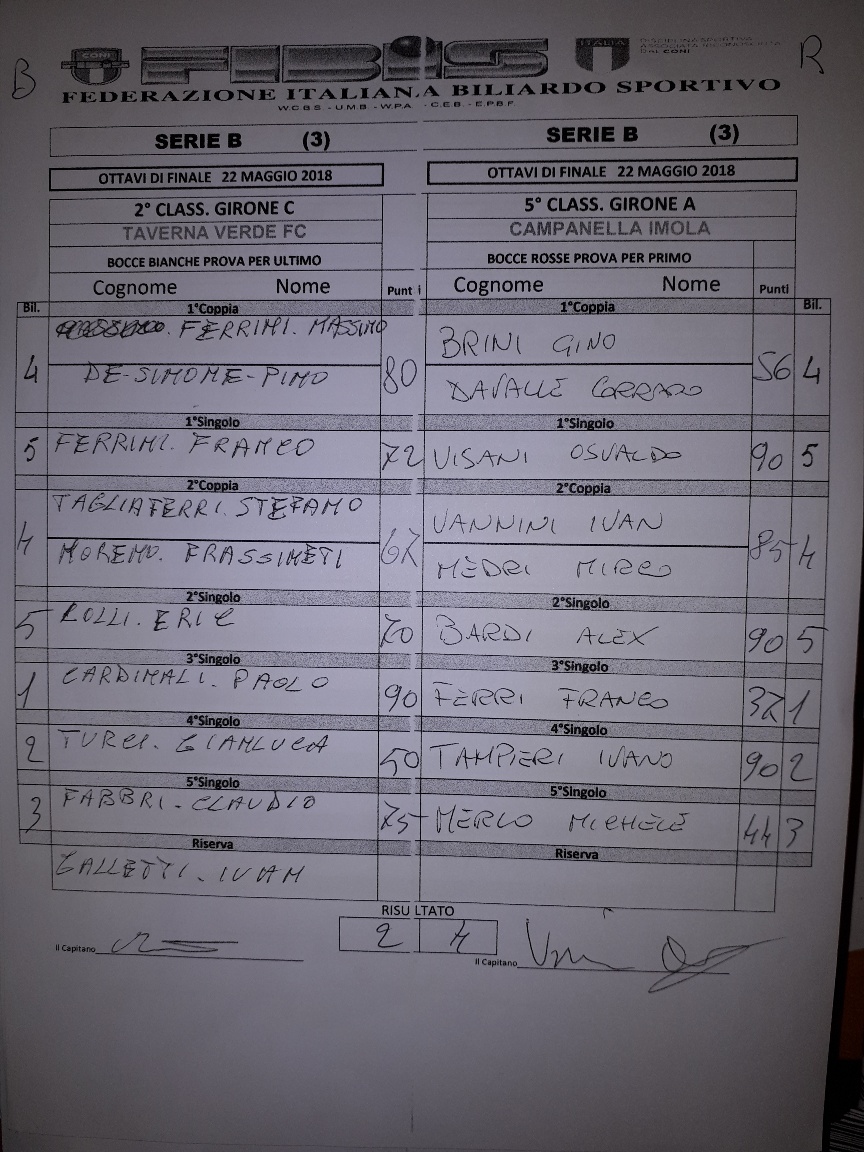 B R
CONI FIBIS ITALIA DISCIPLINA SPORTIVA
ASSOCIATA RICONOSCIUTA
DAL CONI
FEDERAZIONE ITALIANA BILIARDO SPORTIVO
W.C.B.S - U.M.B - W.P.A - C.E.B - E.P.B.F.
SERIE B (3) SERIE B (3)
OTTAVI DI FINALE 22 MAGGIO 2018 OTTAVI DI FINALE 22 MAGGIO 2018
2° CLASS. GIRONE C 5° CLASS. GIRONE A
TAVERNA VERDE FC CAMPANELLA IMOLA
BOCCE BIANCHE PROVA PER ULTIMO BOCCE ROSSE PROVA PER PRIMO
Cognome Nome Punti Cognome Nome Punti
Bil. 1°Coppia 1°Coppia Bil.
FERRINI. MASSIMO BRINI GINO
4 DE-SIMONE-PINO 80 DAVALLE CORRADO 56 4
1°Singolo 1°Singolo
5 FERRINI. FRANCO 72 VISANI OSVALDO 90 5
2°Coppia 2°Coppia
TAGLIAFERRI. STEFANO VANNINI IVAN
4 MORENO. FRASSINETI 67 MEDRI MIRCO 85 4
2°Singolo 2°Singolo
5 LOLLI. ERIC 70 BARDI ALEX 90 5
3°Singolo 3°Singolo
1 CARDINALI. PAOLO 90 FERRI FRANCO 37 1
4°Singolo 4°Singolo
2 TURCI. GIANLUCA 50 TAMPIERI IVANO 90 2
5°Singolo 5°Singolo
3 FABBRI. CLAUDIO 75 MERLO MICHELE 44 3
Riserva Riserva
GALLETTI. IVAN
RISULTATO
2 4
Il Capitano Il Capitano